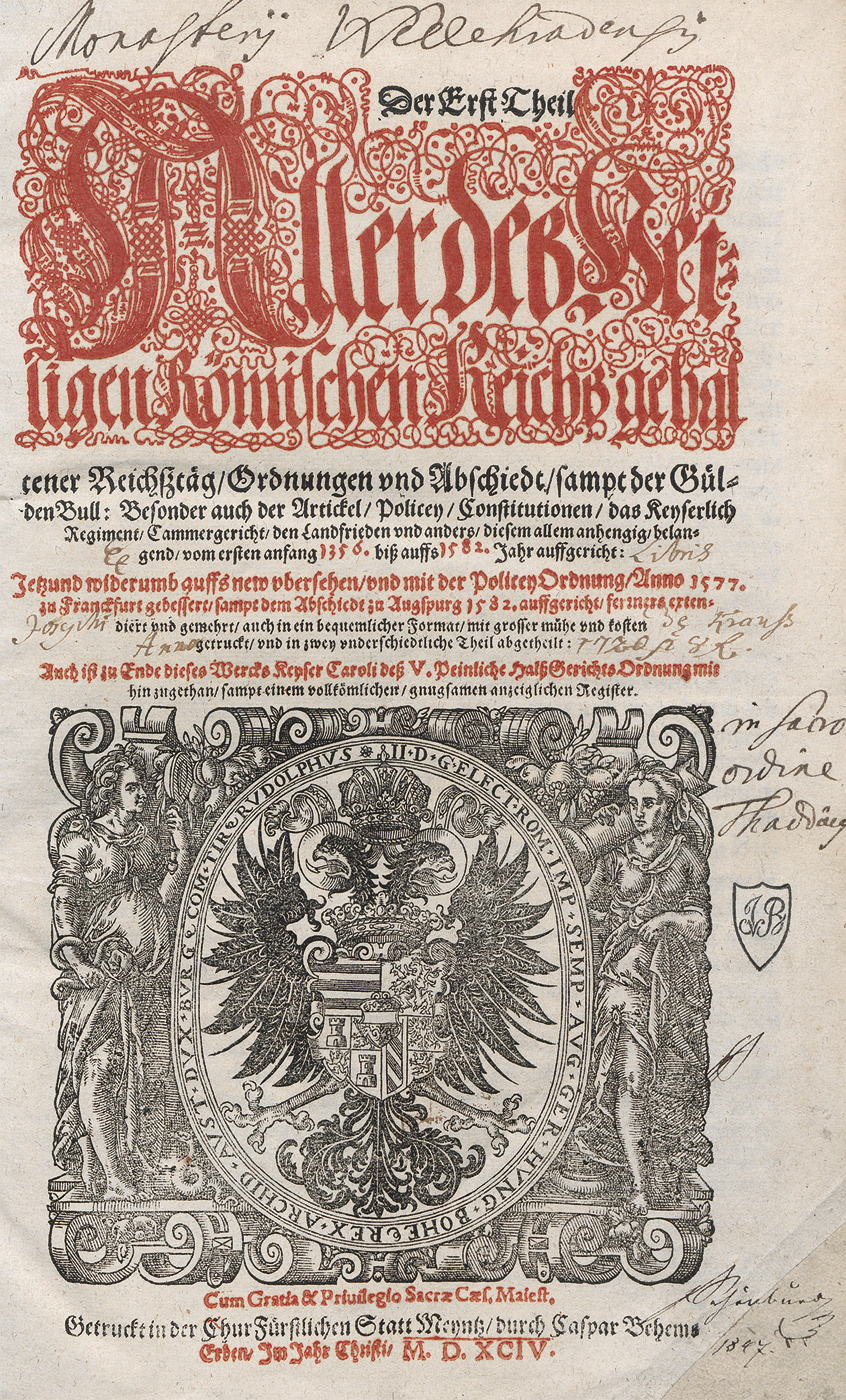 Monasterij Wellehradensis
Der Erst Theil
Aller deß Hei-
ligen Römischen Reichß gehal
tener Reichßtäg/Ordnungen vnd Abschiedt/sampt der Gül-
den Bull: Besonder auch der Artickel/Policey/Constitutionen/das Keyserlich
Regiment/Cammergericht/den Landfrieden vnd anders/diesem allem anhengig/belan-
Ex gend/vom ersten anfang 1356. biß auffs 1582. Jahr auffgericht: Libris
Jetzund widerumb auffs new vbersehen/vnd mit der Policey Ordnung/Anno 1577.
zu Franckfurt gebessert/sampt dem Abschiedt zu Augspurg 1582. auffgericht/ferrners exten-
diert vnd gemehrt/auch in ein bequemlicher Format/mit grosser mühe vnd kosten de Krauß
Anno getruckt/vnd in zwey vnderschiedtliche Theil abgetheilt:
Auch ist zu Ende dieses Wercks Keyser Caroli deß V. Peinliche Halß Gerichts Ordnung mit
hin zugethan/sampt einem vollkömlichen/gnugsamen anzeiglichen Register.
in sacro
ordine
RVDOLPHVS II · D · G · ELECT · ROM · IMP · SEMP · AVG · GER · HVNG · BOHE REX · ARCHID · AVST · DVX · BVRG COM · TIR
JB
Cum Gratia & Priuilegio Sacræ Cæs. Maiest.
Getruckt in der Chur Fürstlichen Statt Meyntz/durch Caspar Behems
Erben/Im Jahr Christi/M. D. XCIV.
1847.